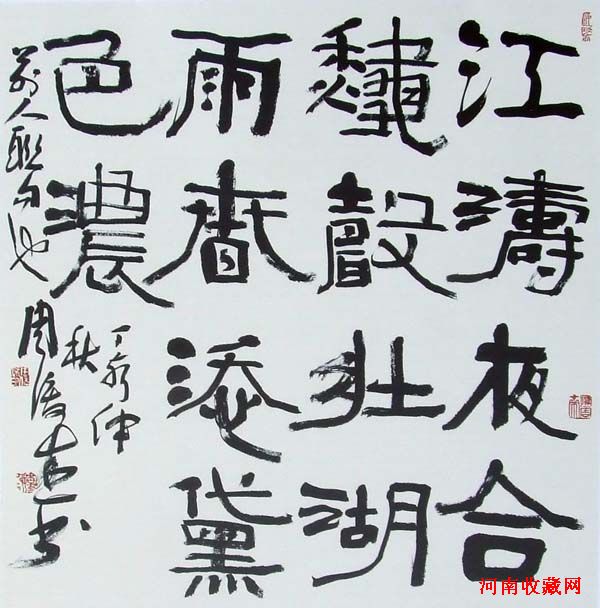 江濤夜合
龝聲壯湖
雨春添黛
色濃
前人聯句也
丁亥仲
秋
周俊杰書
河南收藏网